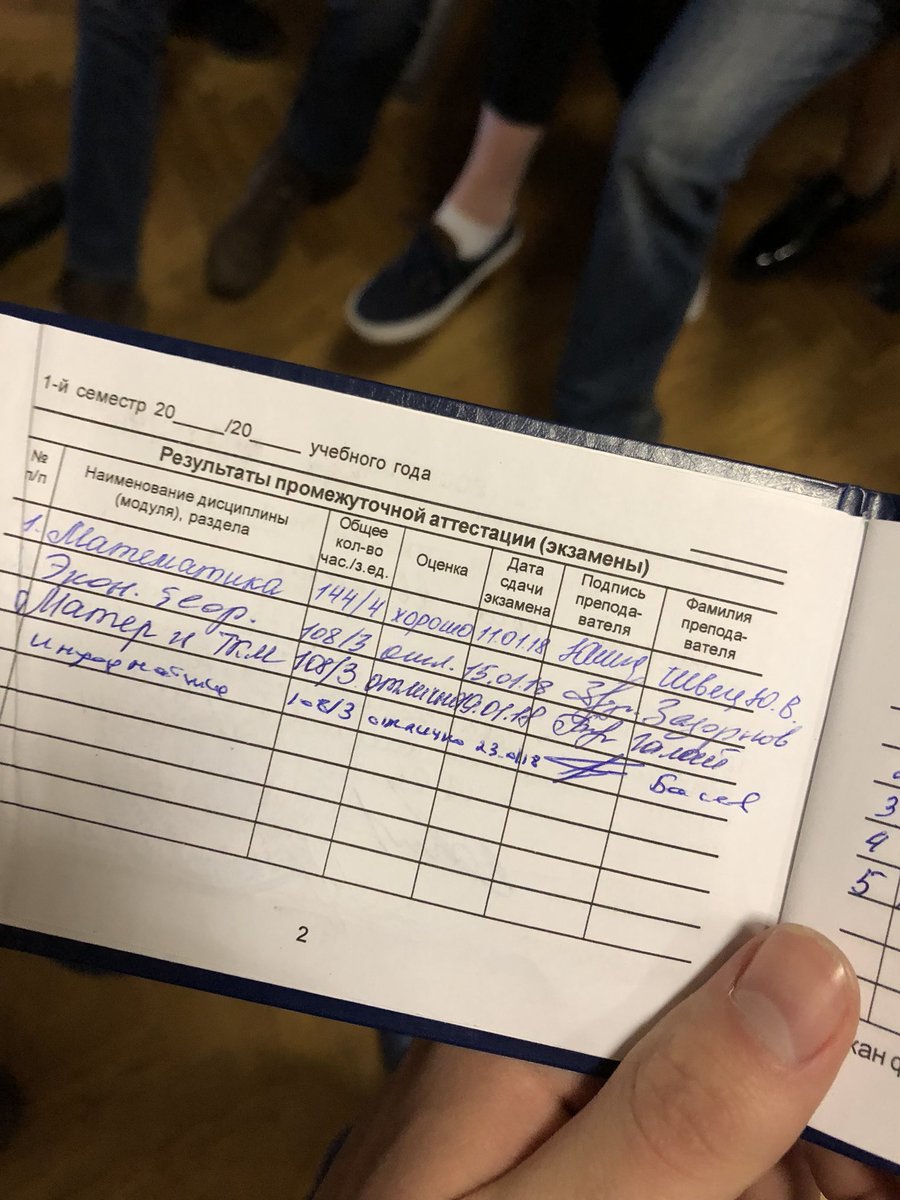 1-й семестр 20____/20____ учебного года
Результаты промежуточной аттестации (экзамены)
№ п/п Наименование дисциплины (модуля), раздела Общее кол-во час./з.ед. Оценка Дата сдачи экзамена Подпись препода-вателя Фамилия препода-вателя
1. Математика 144/4 хорошо 11.01.18 Швец Ю.В.
Экон. теор. 108/3 отл. 15.01.18 Задорнов
Матер и ТКМ 108/3 отлично 19.01.18
информатика 108/3 отлично 23.01.18
2
3
4
5